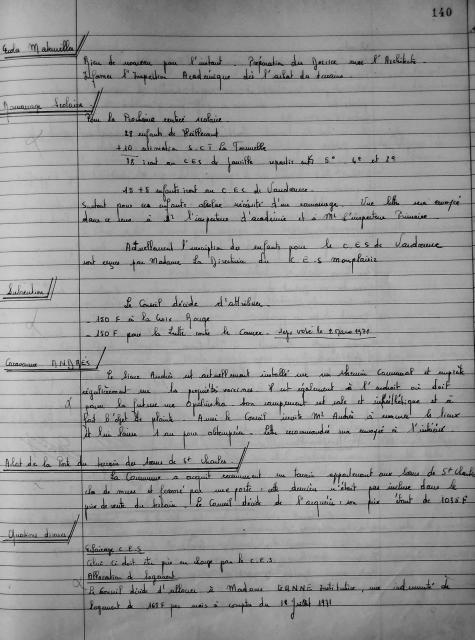 140
Ecole Maternelle
Rien de nouveau pour l'instant. Préparation du Dossier avec l'Architecte.
Informer l'Inspection Académique dès l'achat du terrain
Ramassage Scolaire
Pour la Prochaine rentrée scolaire.
28 enfants de
+ 10 S.C.I La Tournelle
38 iront au C.E.S de Jouville répartis entre 5° 4° et 3°
15 + 8 enfants iront au C.E.S de Vaudreuse.
Surtout pour ces enfants absolue nécessité d'un ramassage. Une lettre sera envoyée
dans ce sens à Mr l'inspecteur d'académie et à Mr l'inspecteur Primaire.
Actuellement l'inscription des enfants pour le C.E.S de Vaudreuse
sont reçues par Madame la Directrice du C.E.S monplaisir
Subvention
Le Conseil décide d'attribuer.
- 150 F à la Croix Rouge
- 150 F pour la Lutte contre le Cancer. voté le 2 Mars 1971
Caravane ANDRÉS
Le Sieur Andrès est actuellement installé sur un chemin communal et empiète
régulièrement sur la propriété voisine. Il est également à l'endroit où doit
passer la future rue son campement est sale et et a
fait l'objet de plainte. Aussi le Conseil invite Mr Andrès à évacuer les lieux
et lui laisse 1 an pour obtempérer. Lettre recommandée sera envoyée à l'intéressé
Achat de la Porte du terrain des soeurs de St Charles.
La Commune a acquit récemment un terrain appartenant aux soeurs de St Charles
clos de murs et fermé par une porte. cette dernière n'était pas incluse dans le
prix de vente du terrain. Le Conseil décide de l'acquérir: son prix étant de 1035 F
Questions diverses
Eclairage C.E.S
Celui ci doit être pris en charge par le C.E.S
Allocation de logement
Le Conseil décide d'allouer à Madame GANNE Institutrice, une indemnité de
logement de 168 F par mois à compter du 1er Juillet 1971